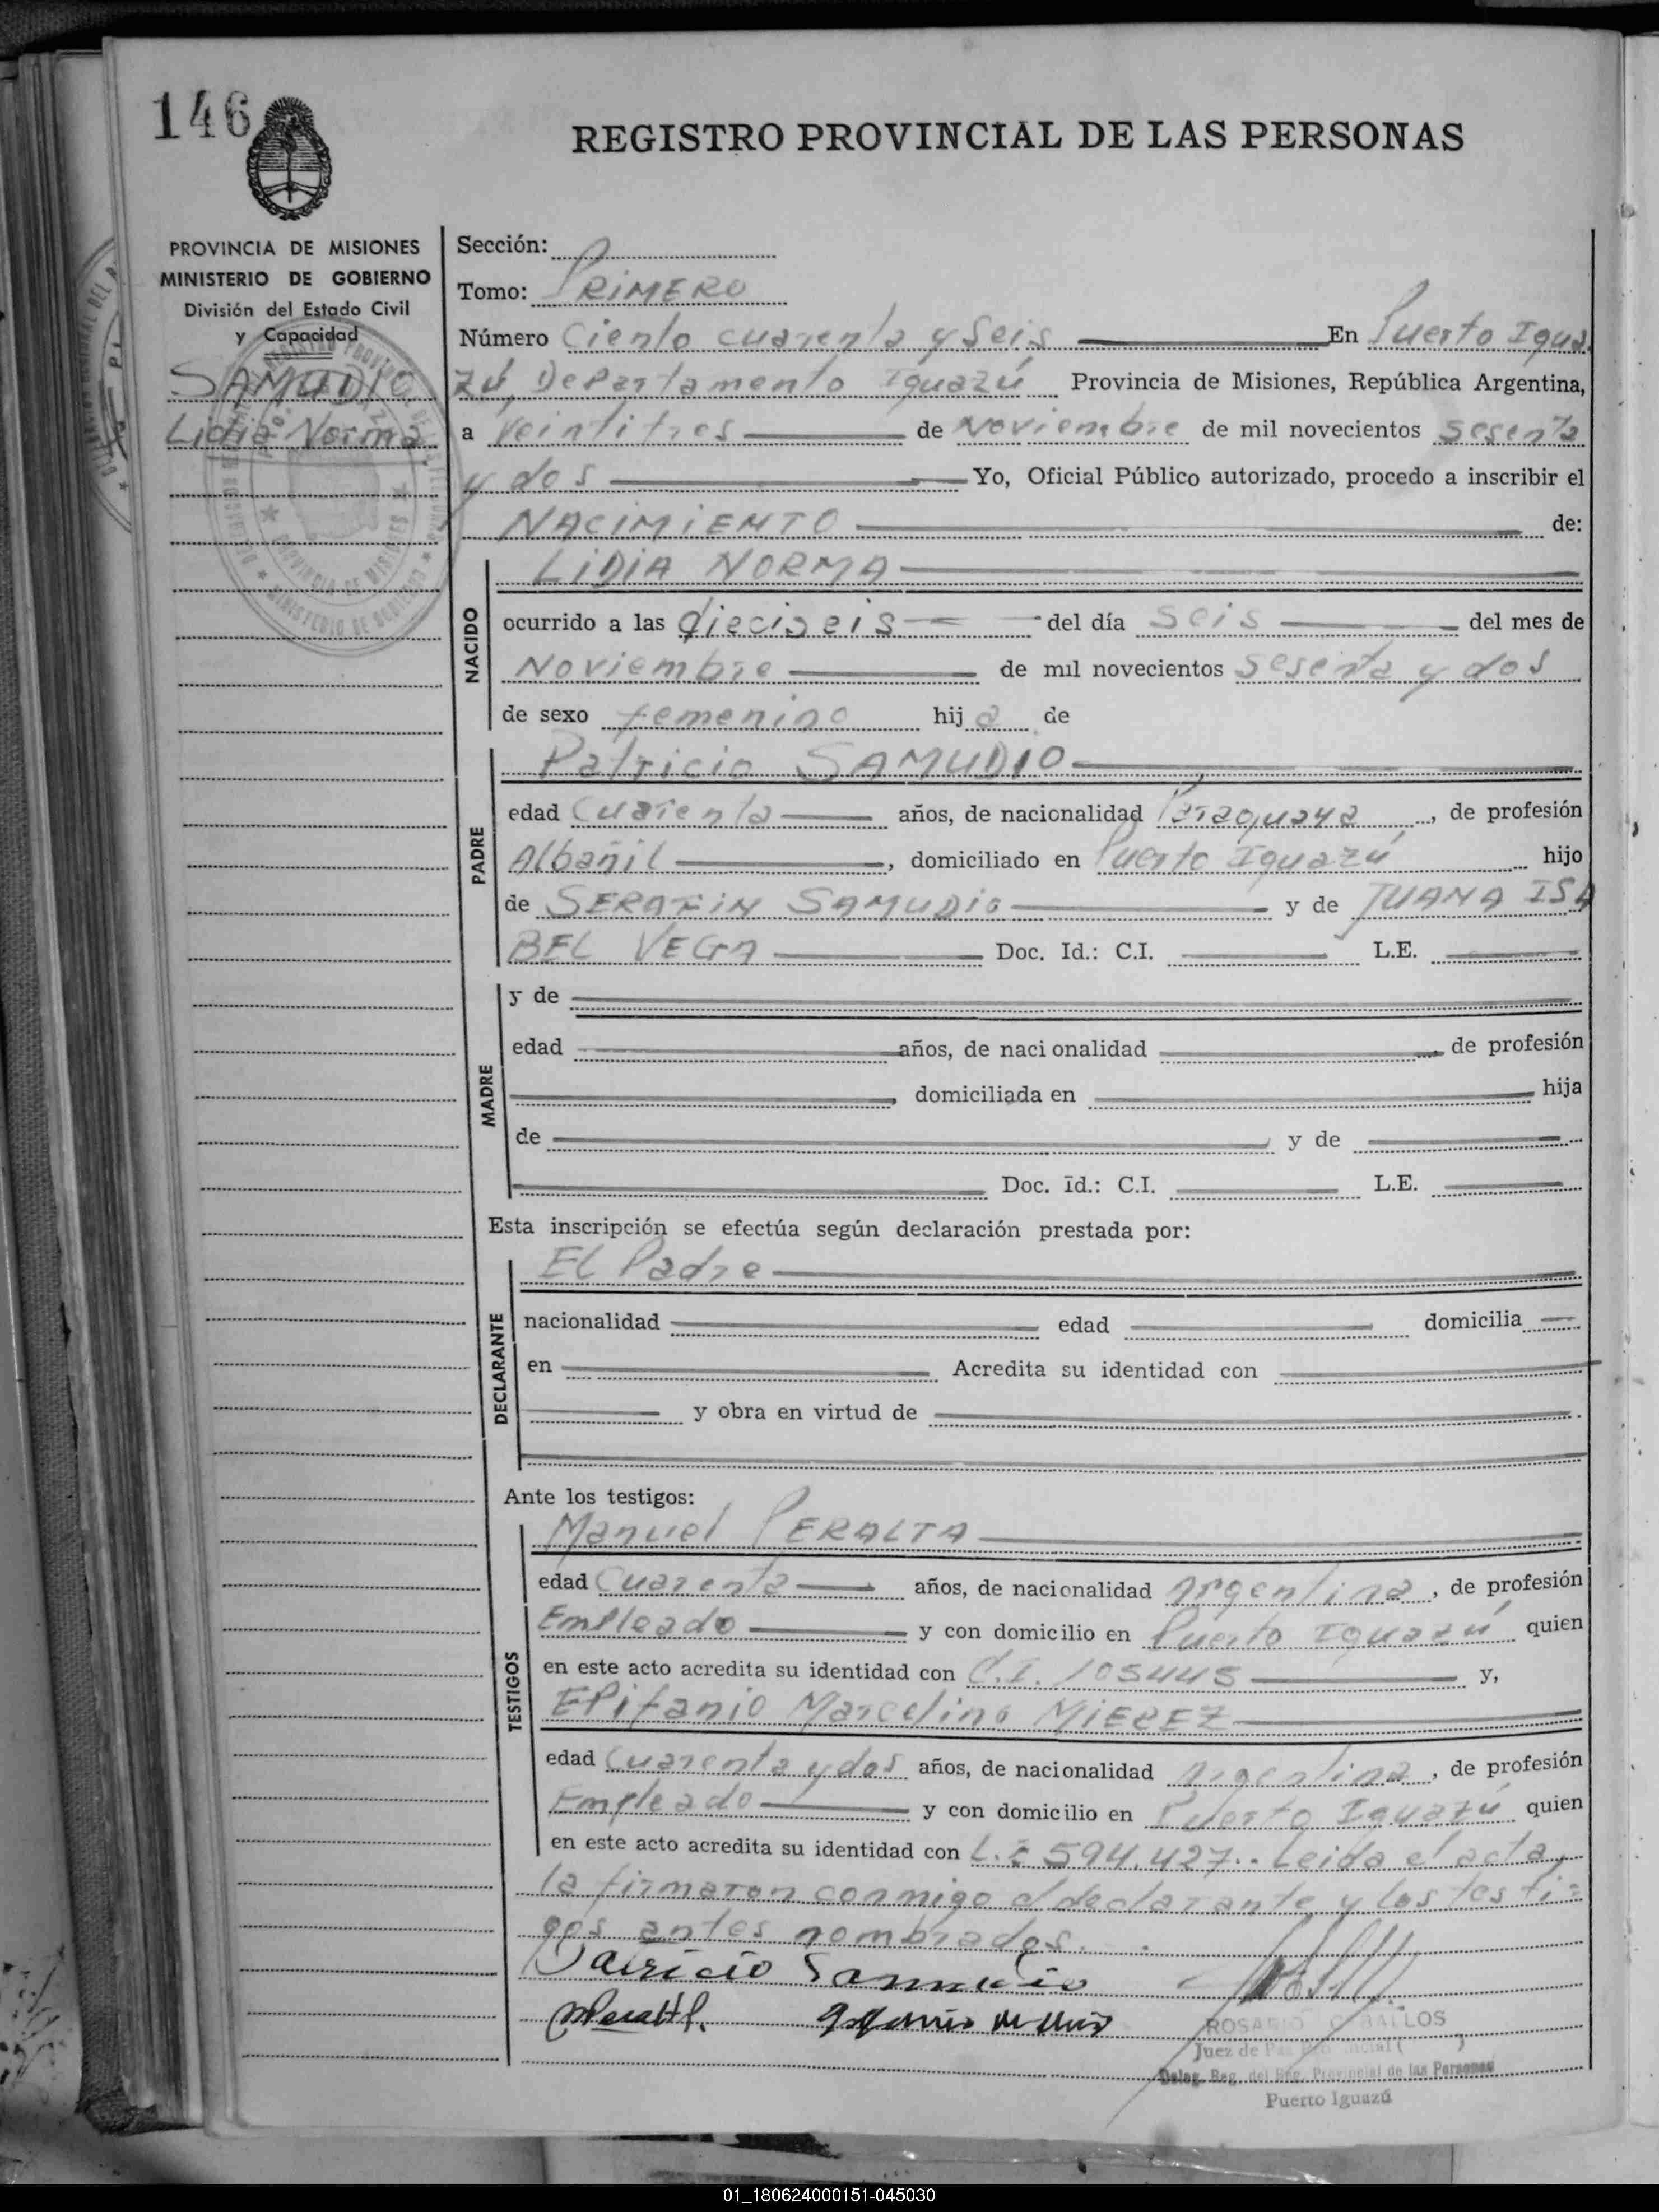 146
REGISTRO PROVINCIAL DE LAS PERSONAS
PROVINCIA DE MISIONES
MINISTERIO DE GOBIERNO
División del Estado Civil
y Capacidad
SAMUDIO
Lidia Norma
Sección:
Tomo: PRIMERO
Número Ciento cuarenta y seis En Puerto Igua
zú, Departamento Iguazú Provincia de Misiones, República Argentina,
a veintitres de Noviembre de mil novecientos sesenta
y dos Yo, Oficial Público autorizado, procedo a inscribir el
NACIMIENTO de:
NACIDO
LIDIA NORMA
ocurrido a las dieciseis del día seis del mes de
Noviembre de mil novecientos sesenta y dos
de sexo femenino hij a de
PADRE
Patricio SAMUDIO
edad Cuarenta años, de nacionalidad Paraguaya, de profesión
Albañil, domiciliado en Puerto Iguazú hijo
de SERAFIN SAMUDIO y de JUANA ISA
BEL VEGA Doc. Id.: C.I. L.E.
MADRE
y de
edad años, de nacionalidad de profesión
, domiciliada en hija
de y de
Doc. Id.: C.I. L.E.
Esta inscripción se efectúa según declaración prestada por:
DECLARANTE
El Padre
nacionalidad edad domicilia
en Acredita su identidad con
y obra en virtud de
Ante los testigos:
TESTIGOS
Manuel PERALTA
edad Cuarenta años, de nacionalidad Argentina, de profesión
Empleado y con domicilio en Puerto Iguazú quien
en este acto acredita su identidad con C.I. 105445 y,
Epifanio Marcelino MIEREZ
edad Cuarenta y dos años, de nacionalidad Argentina, de profesión
Empleado y con domicilio en Puerto Iguazú quien
en este acto acredita su identidad con L.E 594.427.. Leida el acta,
la firmaron conmigo el declarante y los testi=
gos antes nombrados.
Patricio Samudio
MPeralta
Juez de
Deleg. Reg. del Reg. Provincial de las Personas
Puerto Iguazú
01_180624000151-045030